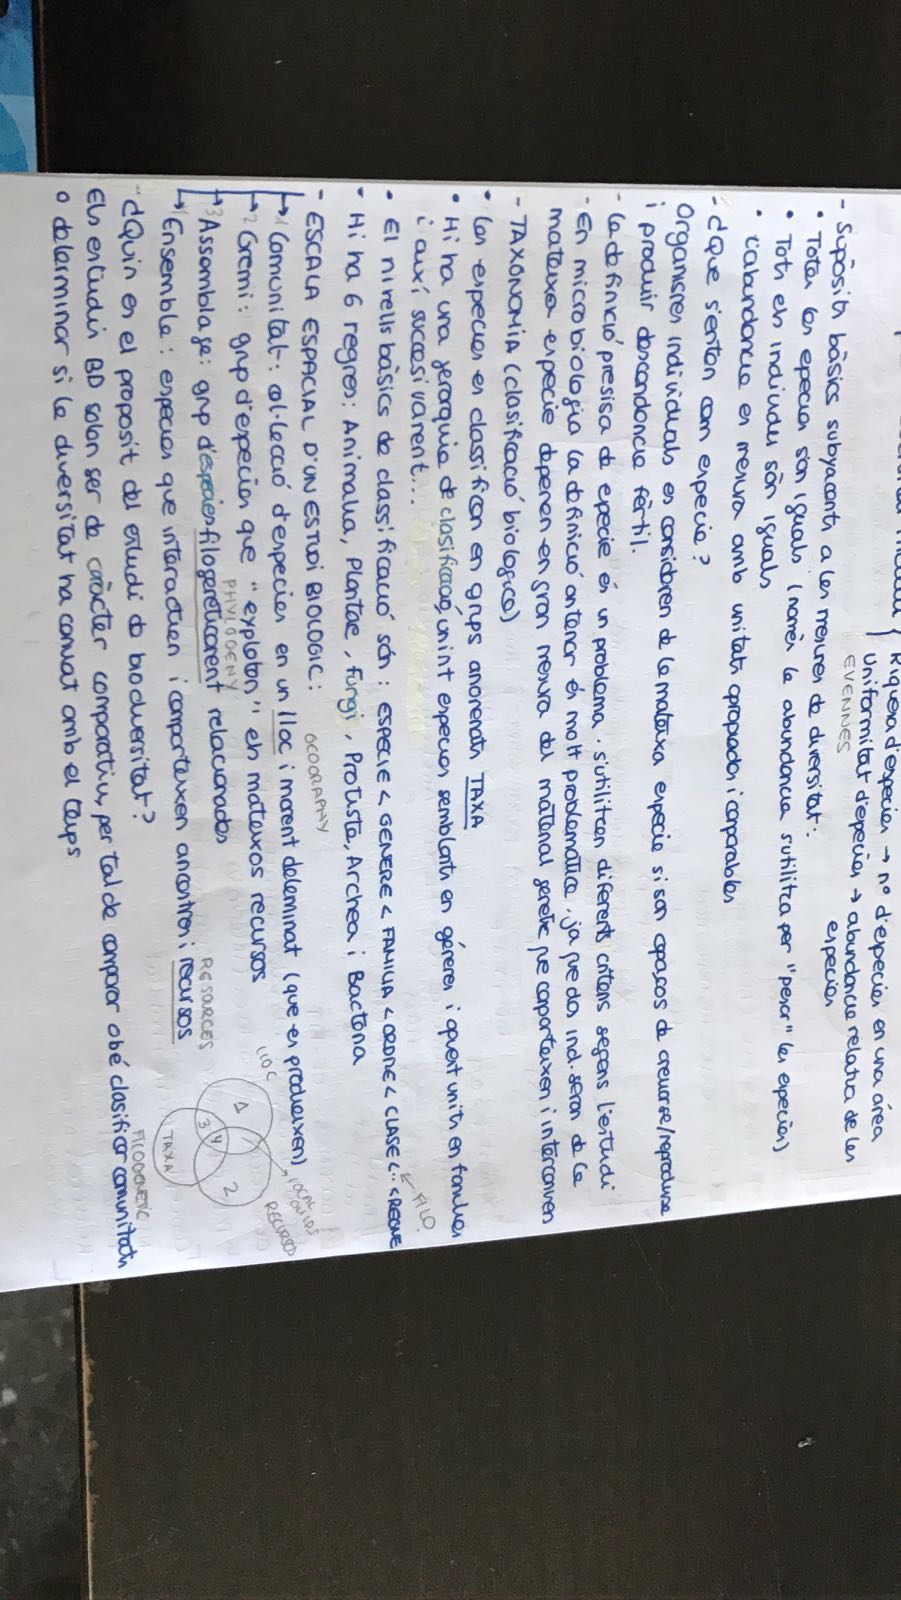 Riquesa d'especies → nº d'especies en una área
Uniformitat d'epecies → abundancia relativa de les
EVENNES
especies
- Supòsits bàsics subyacents a les mesures de diversitat:
• Totes les epecies són iguals (només la abundancia s'utilitza per "pesar" les especies)
• Tots els individus són iguals
• L'abundancia es mesura amb unitats apropiades i comparables
- ¿Que s'enten com especie?
Organismes individuals es consideren de la mateixa especie si son capaços de creuarse/reproduirse
i produir descendencia fèrtil.
- La definició presisa de epecie és un problema. s'utilitzen diferents criteris segons l'estudi
- En microbiologia la definició anterior és molt problematica. ja que dos ind. seran de la
mateixa especie depenen en gran mesura del material genetic que comparteixen i intercanvien
- TAXONOMIA (clasificació biologica)
• Les especies es classifican en grups anomenats TAXA
• Hi ha una jerarquia de clasificació, unint especies semblants en géneres i aquest units en families
i així succesivament...
FILO?
• El nivells bàsics de classificació són: ESPECIE < GENERE < FAMILIA < ORDRE < CLASE <.. < REGNE
• Hi ha 6 regnes: Animalia, Plantae, Fungi, Protista, Archea i Bacteria
- ESCALA ESPACIAL D'UN ESTUDI BIOLOGIC:
GEOGRAPHY
→ 1 Comunitat: col·lecció d'especies en un lloc i moment determinat (que es produeixen)
→ 2 Gremi: grup d'especies que "exploten" els mateixos recursos
PHYLOGENY
→ 3 Assemblage: grup d'especies filogeneticament relacionades
RESOURCES
→ Ensemble: especies que interactuen i comparteixen ancestres i recursos
LLOC
LOCAL
GUILDS
RECURSOS
1
2
3
4
TAXA
FILOGENETIC
- ¿Quin es el proposit del estudi de biodiversitat?
Els estudis BD solen ser de caràcter comparatiu, per tal de comparar o bé clasificar comunitats
o determinar si la diversitat ha canviat amb el temps